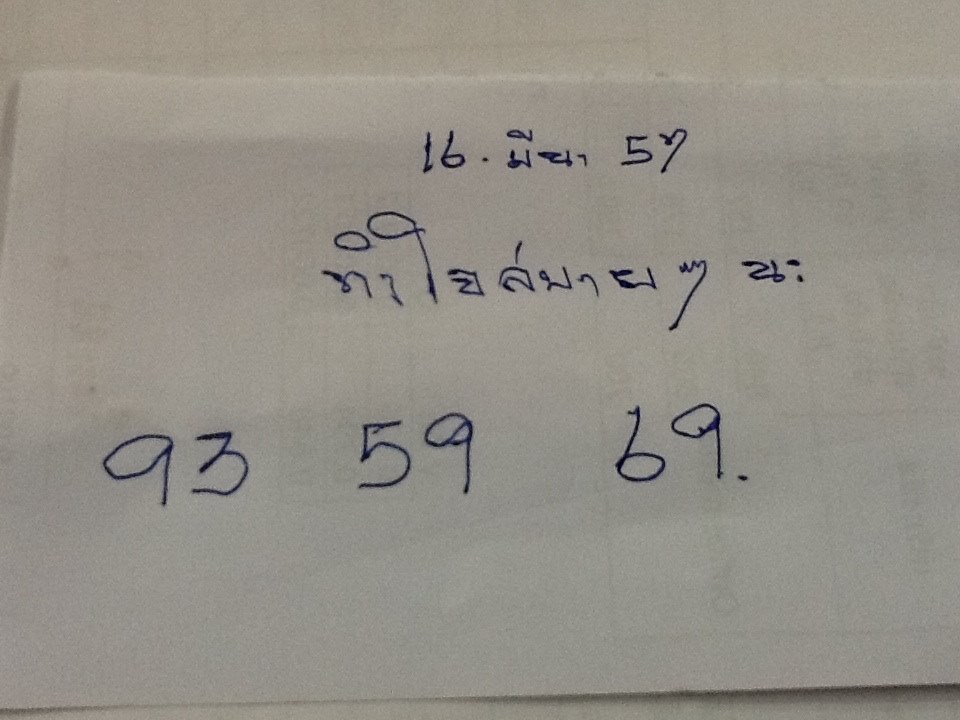 16. มีนา 57
ทำใจสบายๆ นะ
93 59 69.